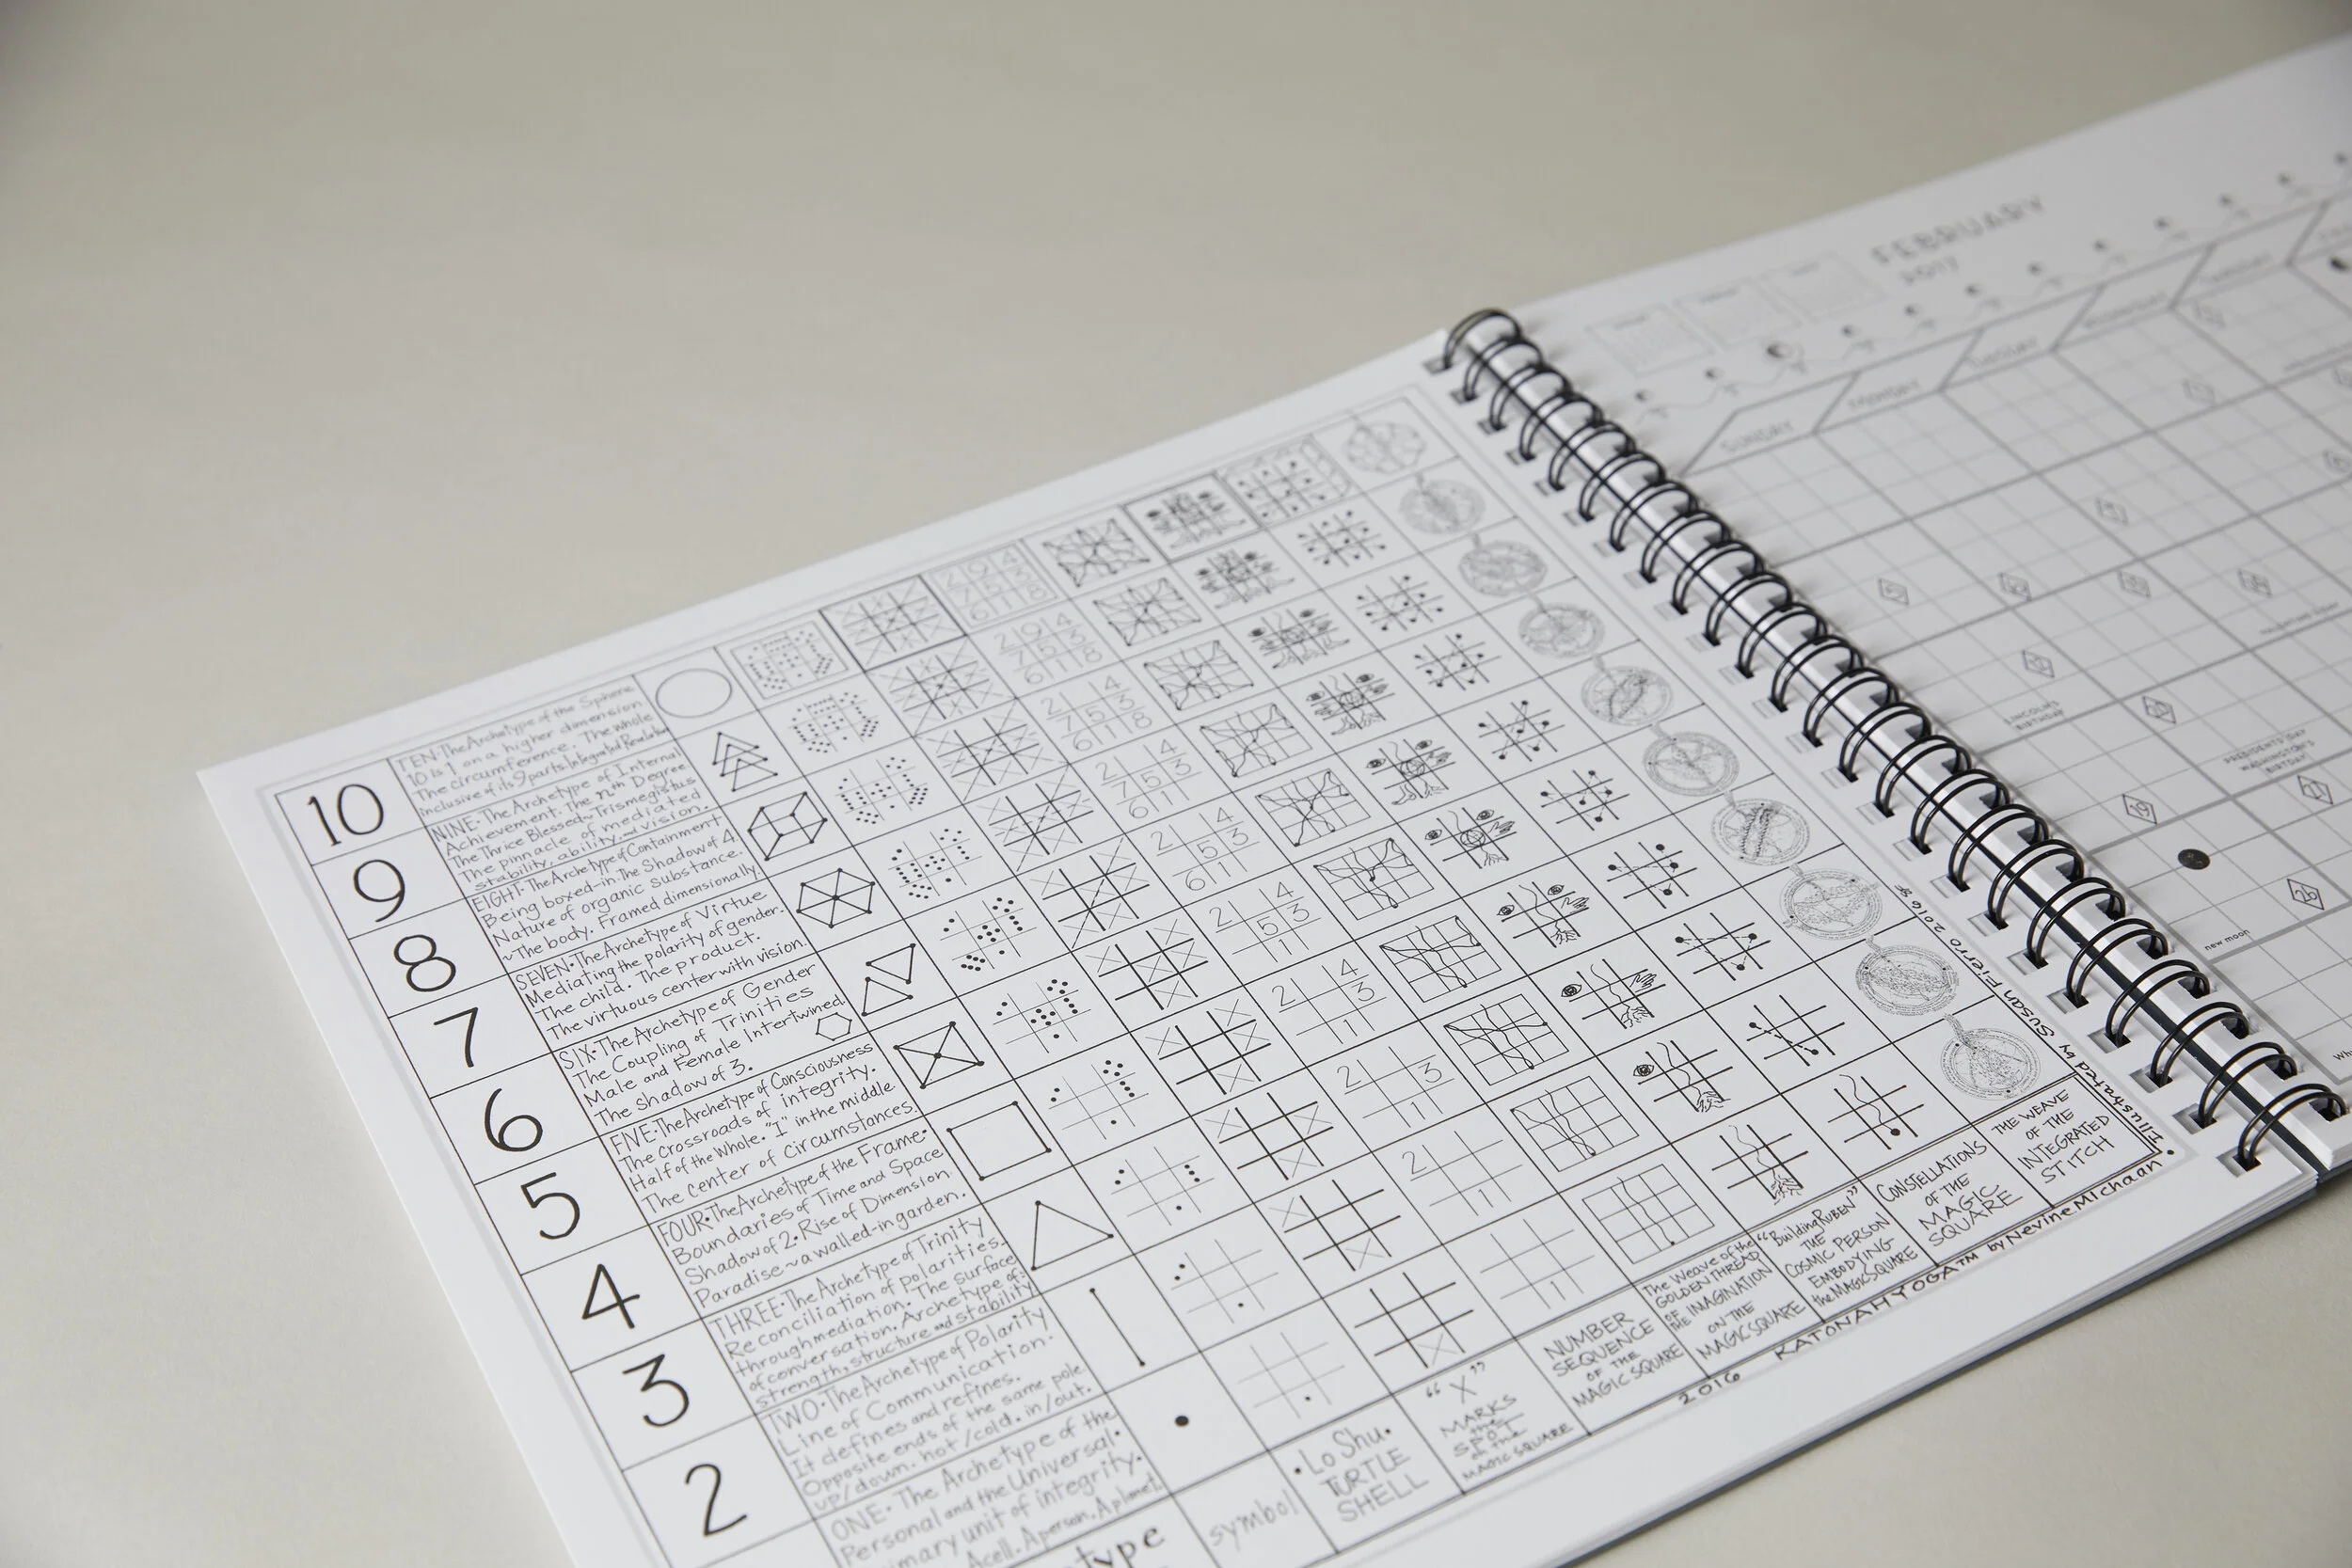 10
TEN•The Archetype of the Sphere
10 is 1 on a higher dimension
The circumference. The whole
Inclusive of its 9 parts Integrated
9
NINE•The Archetype of Internal
Achievement. The nth Degree
The Thrice Blessed~Trismegistus
The pinnacle of mediated
stability, ability, and vision.
8
EIGHT•The Archetype of Containment
Being boxed-in. The Shadow of 4.
Nature of organic substance.
~The body. Framed dimensionally.
7
SEVEN•The Archetype of Virtue
Mediating the polarity of gender.
The child. The product.
The virtuous center with vision.
6
SIX•The Archetype of Gender
The Coupling of Trinities
Male and Female Intertwined.
The Shadow of 3.
5
FIVE•The Archetype of Consciousness
The Crossroads of integrity.
Half of the Whole. "I" in the middle
The Center of Circumstances.
4
FOUR•The Archetype of the Frame•
Boundaries of Time and Space
Shadow of 2• Rise of Dimension
Paradise~a walled-in garden.
3
THREE•The Archetype of Trinity
Reconciliation of polarities.
through mediation. The surface
of conversation. Archetype of:
strength, structure and stability
2
TWO•The Archetype of Polarity
Line of Communication.
It defines and refines.
Opposite ends of the same pole
up/down. hot/cold. in/out.
ONE• The Archetype of the
Personal and the Universal•
unit of integrity.
A cell. A person. A planet.
symbol
•Lo Shu•
TURTLE
SHELL
"X"
MARKS
the
SPOT
on the
MAGIC SQUARE
NUMBER
SEQUENCE
OF THE
MAGIC SQUARE
The Weave of the
GOLDEN THREAD
OF IMAGINATION
ON THE
MAGIC SQUARE
"Building RUBEN"
THE
COSMIC PERSON
EMBODYING
the MAGIC SQUARE
CONSTELLATIONS
OF THE
MAGIC
SQUARE
THE WEAVE
OF THE
INTEGRATED
STITCH
2 9 4
7 5 3
6 1 8
2 9 4
7 5 3
6 1 8
2 4
7 5 3
6 1 8
2 4
7 5 3
6 1
2 4
5 3
6 1
2 4
5 3
1
2 4
3
1
2 3
1
2
1
1
2016 KATONAH YOGA™ by Nevine Michaan•
Illustrated by Susan Fierro 2016
FEBRUARY
2017
SUNDAY
MONDAY
TUESDAY
LINCOLN'S
BIRTHDAY
PRESIDENTS' DAY
WASHINGTON'S
BIRTHDAY
19
new moon